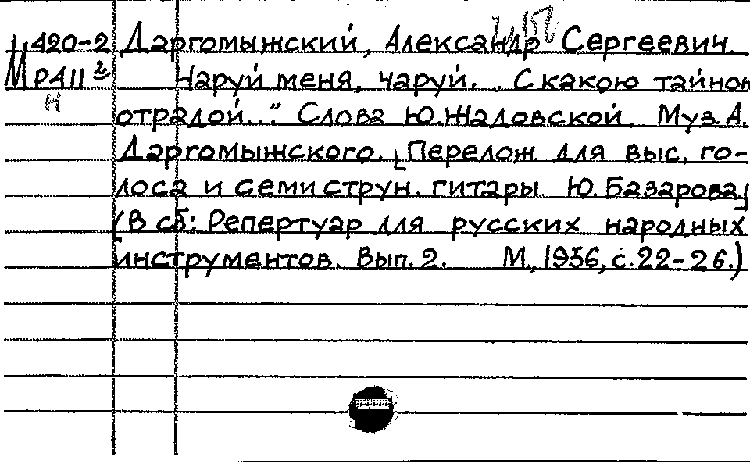 М 420-2 Даргомыжский, Александр Сергеевич
РАII Чаруй меня, чаруй. „С какою тайной
отрадой..." Слова Ю. Жадовской. Муз. А.
Даргомыжского. [Перелож. для выс. го-
лоса и семиструн. гитары Ю. Базарова]
(В сб: Репертуар для русских народных
инструментов. Вып. 2. М., 1956, с. 22-26.)